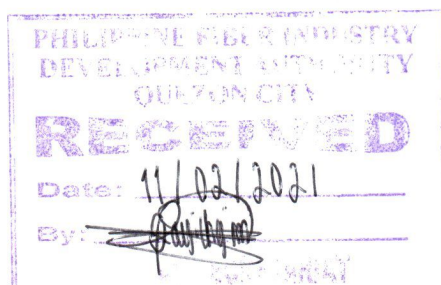 PHILIPPINE FIBER INDUSTRY
DEVELOPMENT AUTHORITY
QUEZON CITY
RECEIVED
Date: 11/02/2021
By: